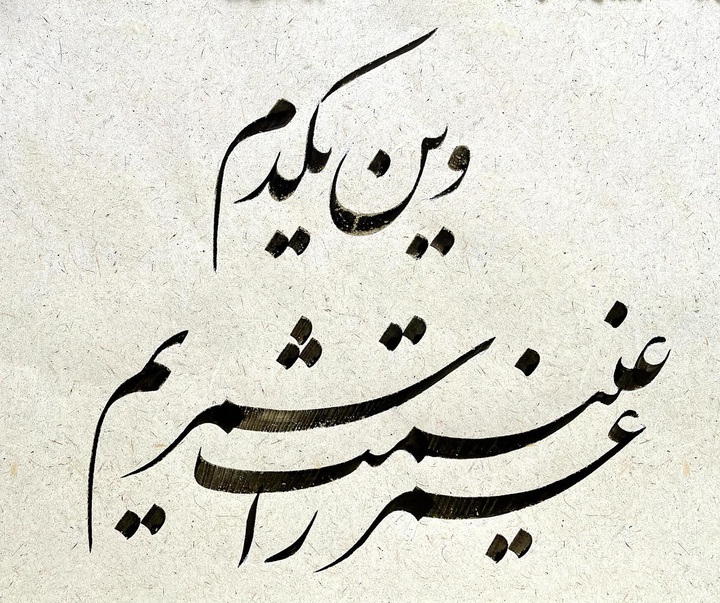 وین یکدم
عمر را غنیمت شمریم